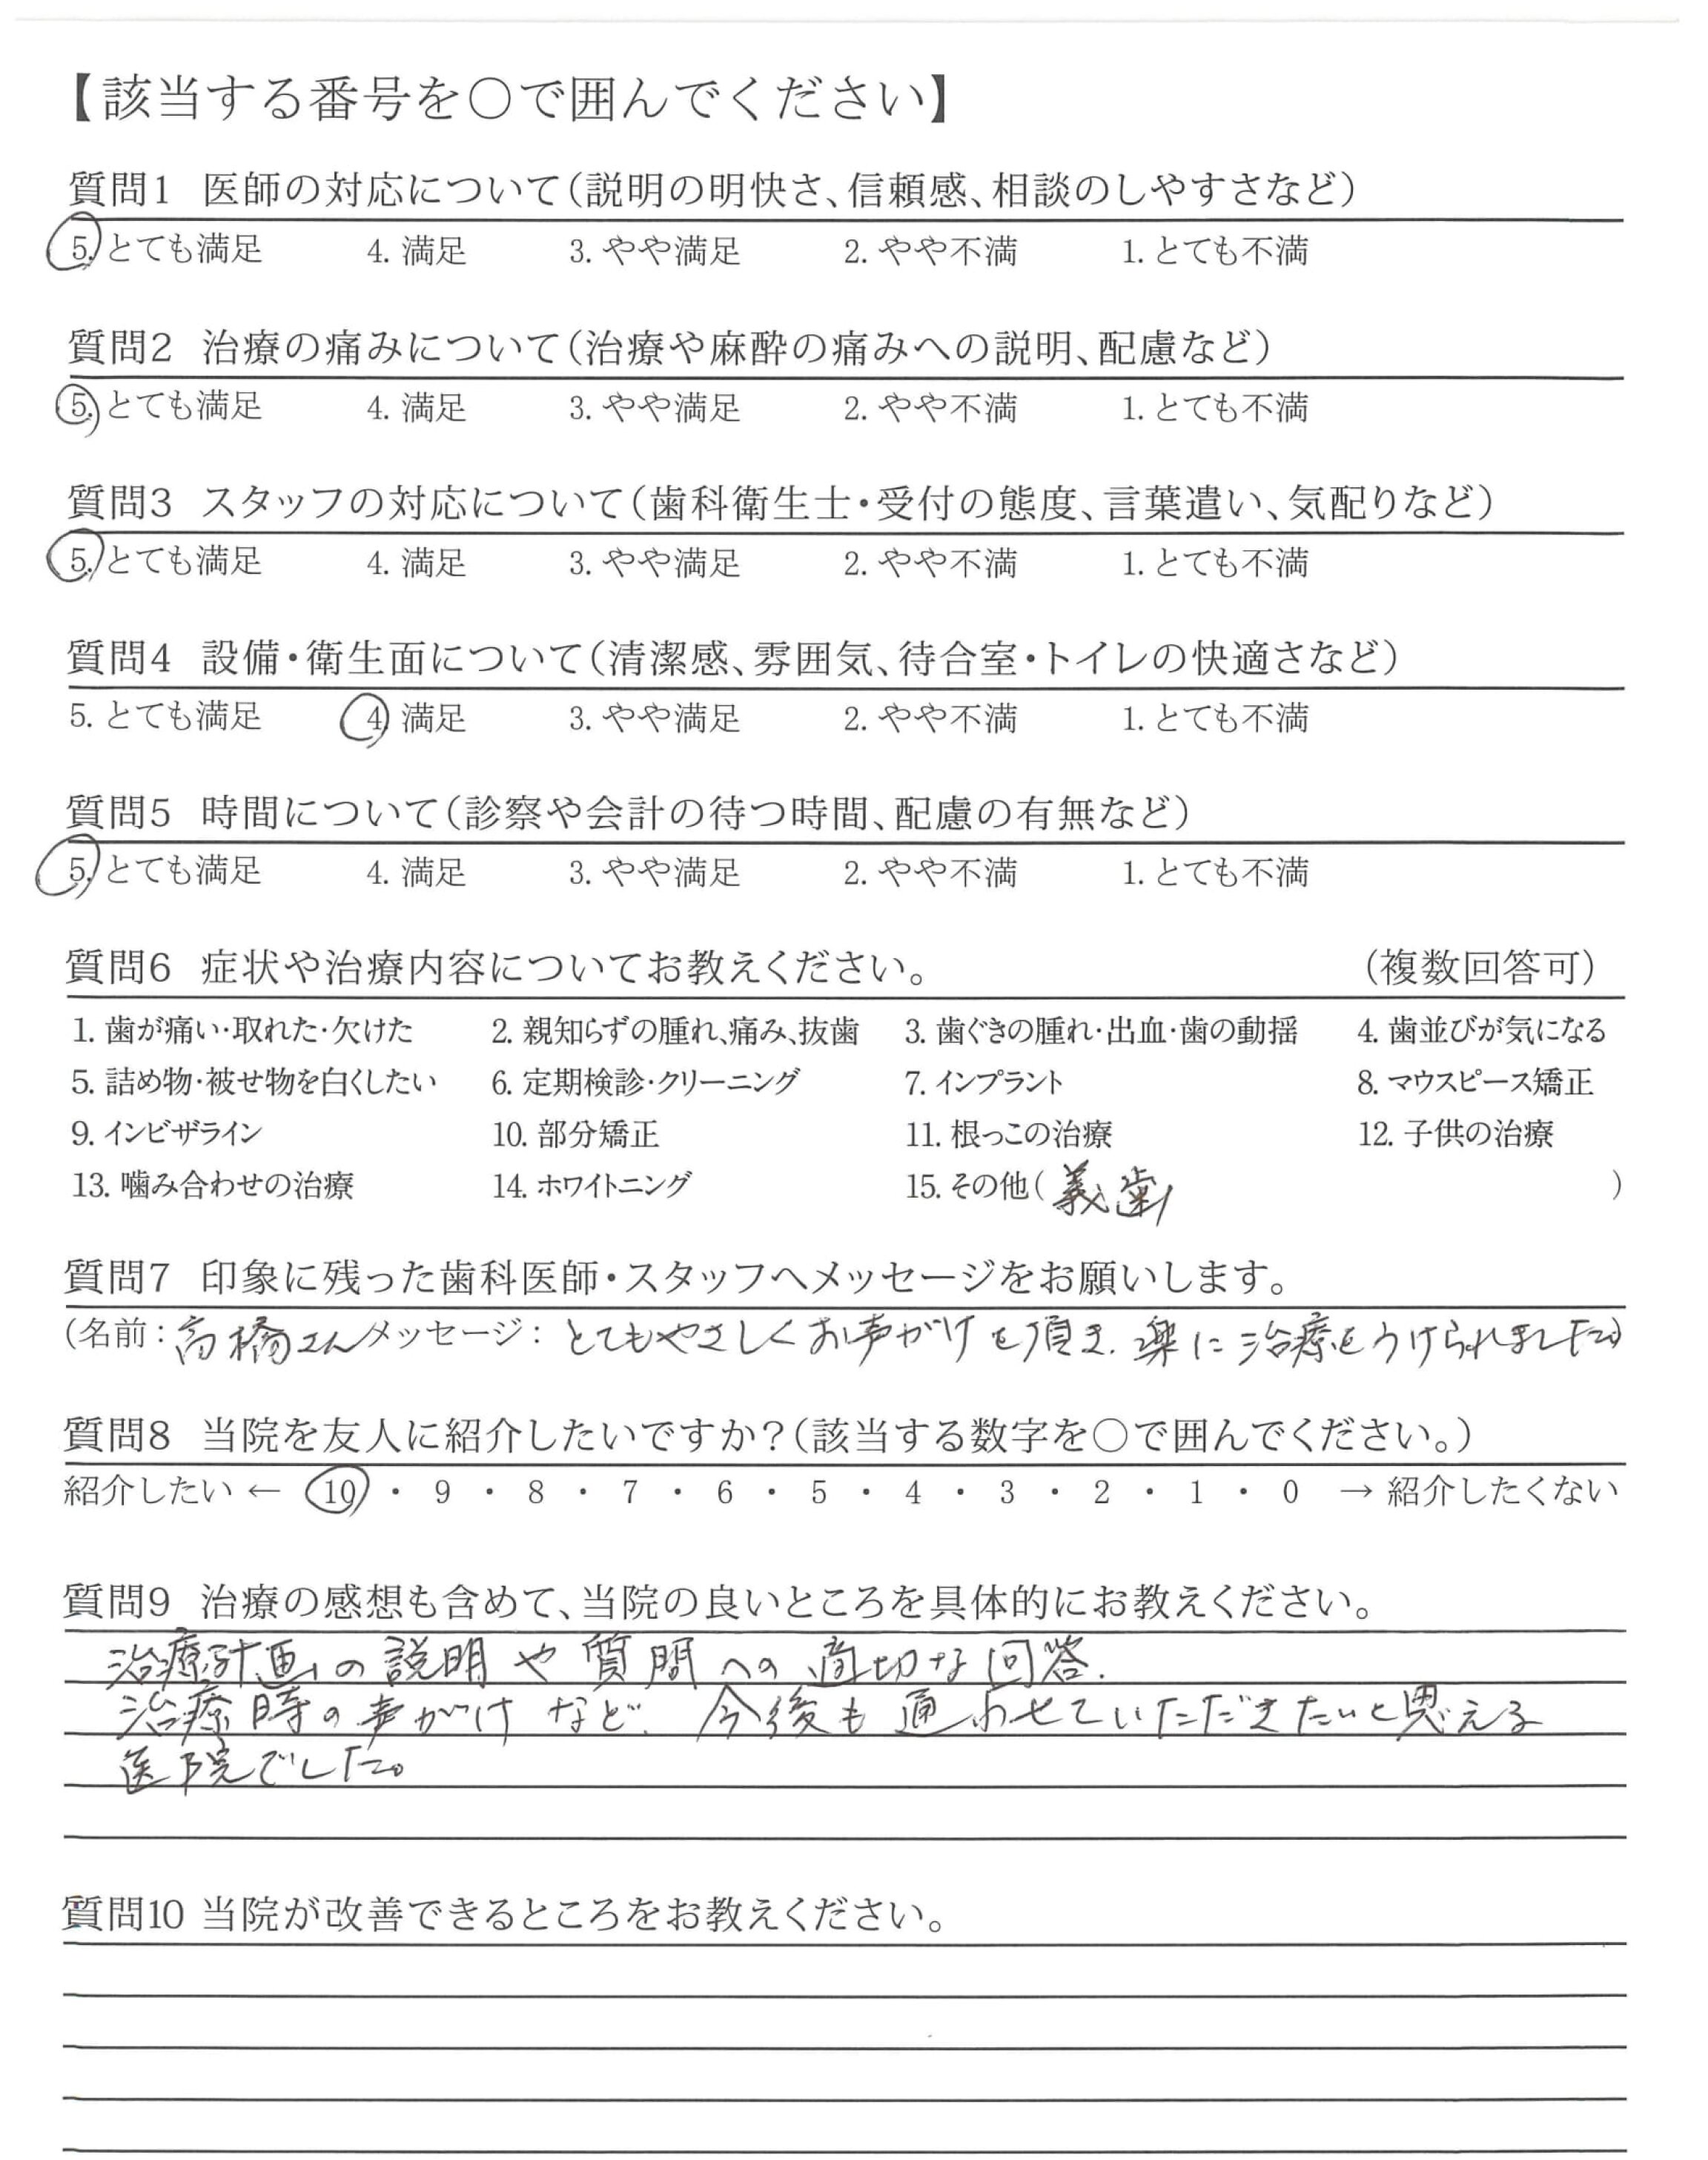 【該当する番号を○で囲んでください】
質問1 医師の対応について（説明の明快さ、信頼感、相談のしやすさなど）
5. とても満足 4. 満足 3. やや満足 2. やや不満 1. とても不満
質問2 治療の痛みについて（治療や麻酔の痛みへの説明、配慮など）
5. とても満足 4. 満足 3. やや満足 2. やや不満 1. とても不満
質問3 スタッフの対応について（歯科衛生士・受付の態度、言葉遣い、気配りなど）
5. とても満足 4. 満足 3. やや満足 2. やや不満 1. とても不満
質問4 設備・衛生面について（清潔感、雰囲気、待合室・トイレの快適さなど）
5. とても満足 4. 満足 3. やや満足 2. やや不満 1. とても不満
質問5 時間について（診察や会計の待つ時間、配慮の有無など）
5. とても満足 4. 満足 3. やや満足 2. やや不満 1. とても不満
質問6 症状や治療内容についてお教えください。 （複数回答可）
1. 歯が痛い・取れた・欠けた 2. 親知らずの腫れ、痛み、抜歯 3. 歯ぐきの腫れ・出血・歯の動揺 4. 歯並びが気になる
5. 詰め物・被せ物を白くしたい 6. 定期検診・クリーニング 7. インプラント 8. マウスピース矯正
9. インビザライン 10. 部分矯正 11. 根っこの治療 12. 子供の治療
13. 噛み合わせの治療 14. ホワイトニング 15. その他（義歯 ）
質問7 印象に残った歯科医師・スタッフへメッセージをお願いします。
（名前：高橋さん メッセージ：とてもやさしくお声がけを頂き、楽に治療をうけられました。）
質問8 当院を友人に紹介したいですか？（該当する数字を○で囲んでください。）
紹介したい ← 10 ・ 9 ・ 8 ・ 7 ・ 6 ・ 5 ・ 4 ・ 3 ・ 2 ・ 1 ・ 0 → 紹介したくない
質問9 治療の感想も含めて、当院の良いところを具体的にお教えください。
治療計画の説明や質問への適切な回答、
治療時の声がけなど、今後も通わせていただきたいと思える
医院でした。
質問10 当院が改善できるところをお教えください。